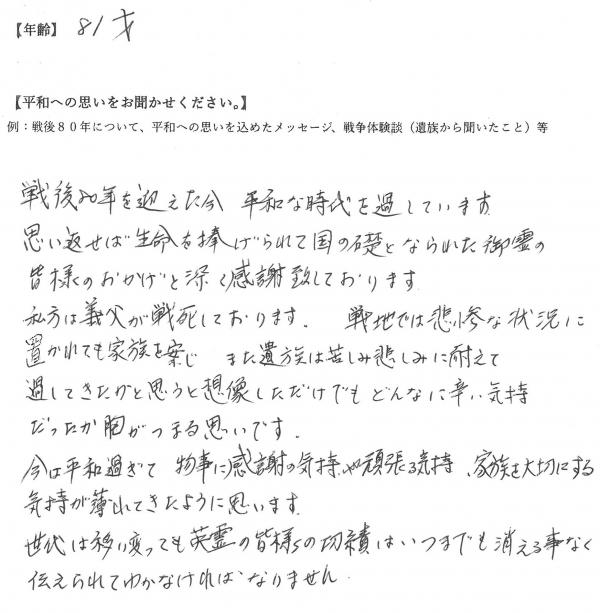 【年齢】 81才
【平和への思いをお聞かせください。】
例：戦後８０年について、平和への思いを込めたメッセージ、戦争体験談（遺族から聞いたこと）等
戦後80年を迎えた今 平和な時代を過しています
思い返せば生命を捧げられて国の礎となられた御霊の
皆様のおかげと深く感謝致しております
私方は義父が戦死しております. 戦地では悲惨な状況に
置かれても家族を案じ また遺族は苦しみ悲しみに耐えて
過してきたかと思うと想像しただけでも どんなに辛い気持
だったか胸がつまる思いです.
今は平和過ぎて 物事に感謝の気持や頑張る気持、家族を大切にする
気持が薄れてきたように思います.
世代は移り変っても英霊の皆様の功績はいつまでも消える事なく
伝えられてゆかなければなりません.